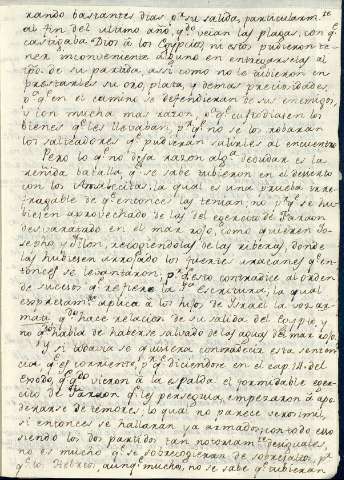 rando bastantes dias p.ª su salida, particularm.te 36
al fin del ultimo año, q.do veian las plagas, con q.e
castigaba Dios à los Egypcios, ni estos pudieron te-
ner inconveniente alguno en entregarselas al
tpõ. de su partida, assi como no le tubieron en
prestarles su oro, plata, y demas preciosidades,
p.ª q.e en el camino se defendieran de sus enemigos,
y con mucha mas razon, p.ª q.e custodiasen los
bienes q.e les llevaban, p.ª q.e no se los robaran
los salteadores q.e pudieran salirles al encuentro.
Pero lo q.e no deja razon alg.ª de dudar es la
reñida batalla, q.e se sabe tubieron en el desierto
con los Amalecitas, la qual es una prueba irre-
fragable de q.e entonces las tenian; no p.r q.e se hu-
biesen aprovechado de las del egercito de Faraon
desbaratado en el mar rojo, como quieren Jo-
sepho, y Filon, recogiendolas de las riberas, donde
las hubiesen arrojado los fuertes uracanes q.e en-
tonces se levantaron: p.s esto contradice al orden
de sucesos q.e refiere la S.ta Escritura, la qual
expresam.te aplica à los hijos de Israel la voz ar-
mata q.do hace relacion de su salida del Egipto, y
no q.do habla de haberse salvado de las aguas del mar rojo.
Y si todavia se quisiera contradecir esta senten-
cia q.e es corriente, p.r q.e diciendose en el cap. 14. del
Exodo, q.e q.do vieron à la espalda el formidable exer-
cito de Faraon q.e les perseguia, empezaron à apo-
derarse de temores; lo qual no parece verosimil,
si entonces se hallaran ya armados; con todo eso
siendo los dos partidos tan notoriam.te desiguales,
no es mucho q.e se sobrecogieran de sobresaltos, p.s
q.e los Hebreos, aunq.e muchos, no se sabe q.e tubieran